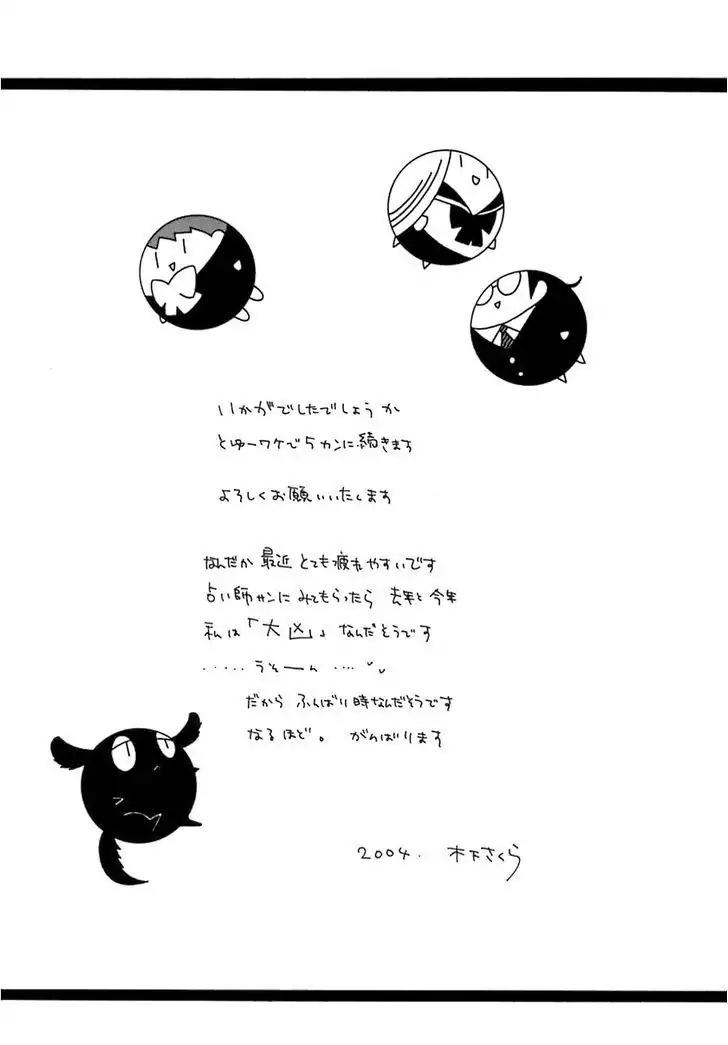 いかがでしたでしょうか
とゆーワケで5カンに続きます
よろしくお願いいたします
なんだか最近とても疲れやすいです
占い師サンにみてもらったら 去年と今年
私は「大凶」なんだそうです
‥‥‥うそーん‥‥
だから ふんばり時なんだそうです
なるほど。 がんばります
2004. 木下さくら